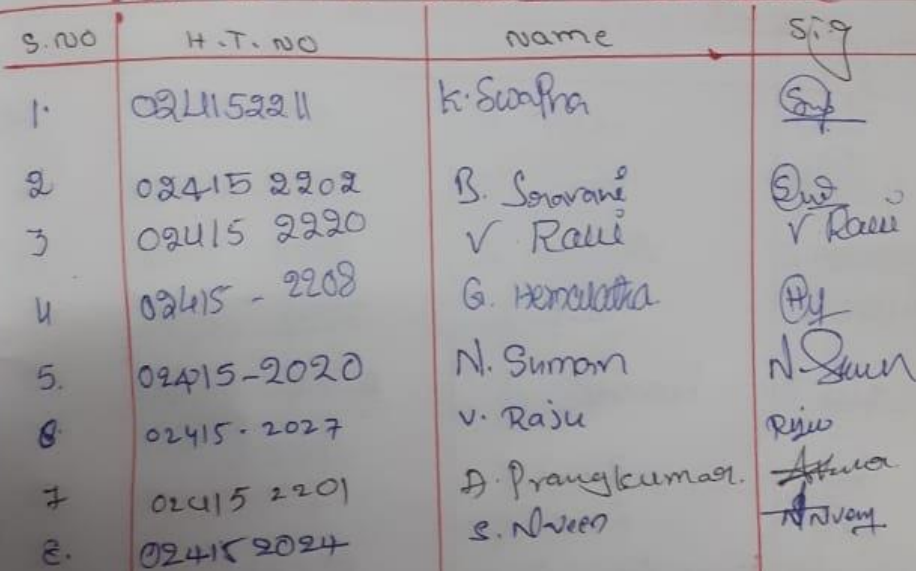 S.NO H.T.NO Name Sig
1. 024152211 K. Swapna
2 02415 2202 B. Sravani
3 02415 2220 V Ravi V Ravi
4 02415 - 2208 G. Hemalatha Hy
5. 02415-2020 N. Suman N. Suman
6. 02415-2027 V. Raju Raju
7 02415 2201 A. Pranaykumar.
8. 02415 2024 S. Naveen